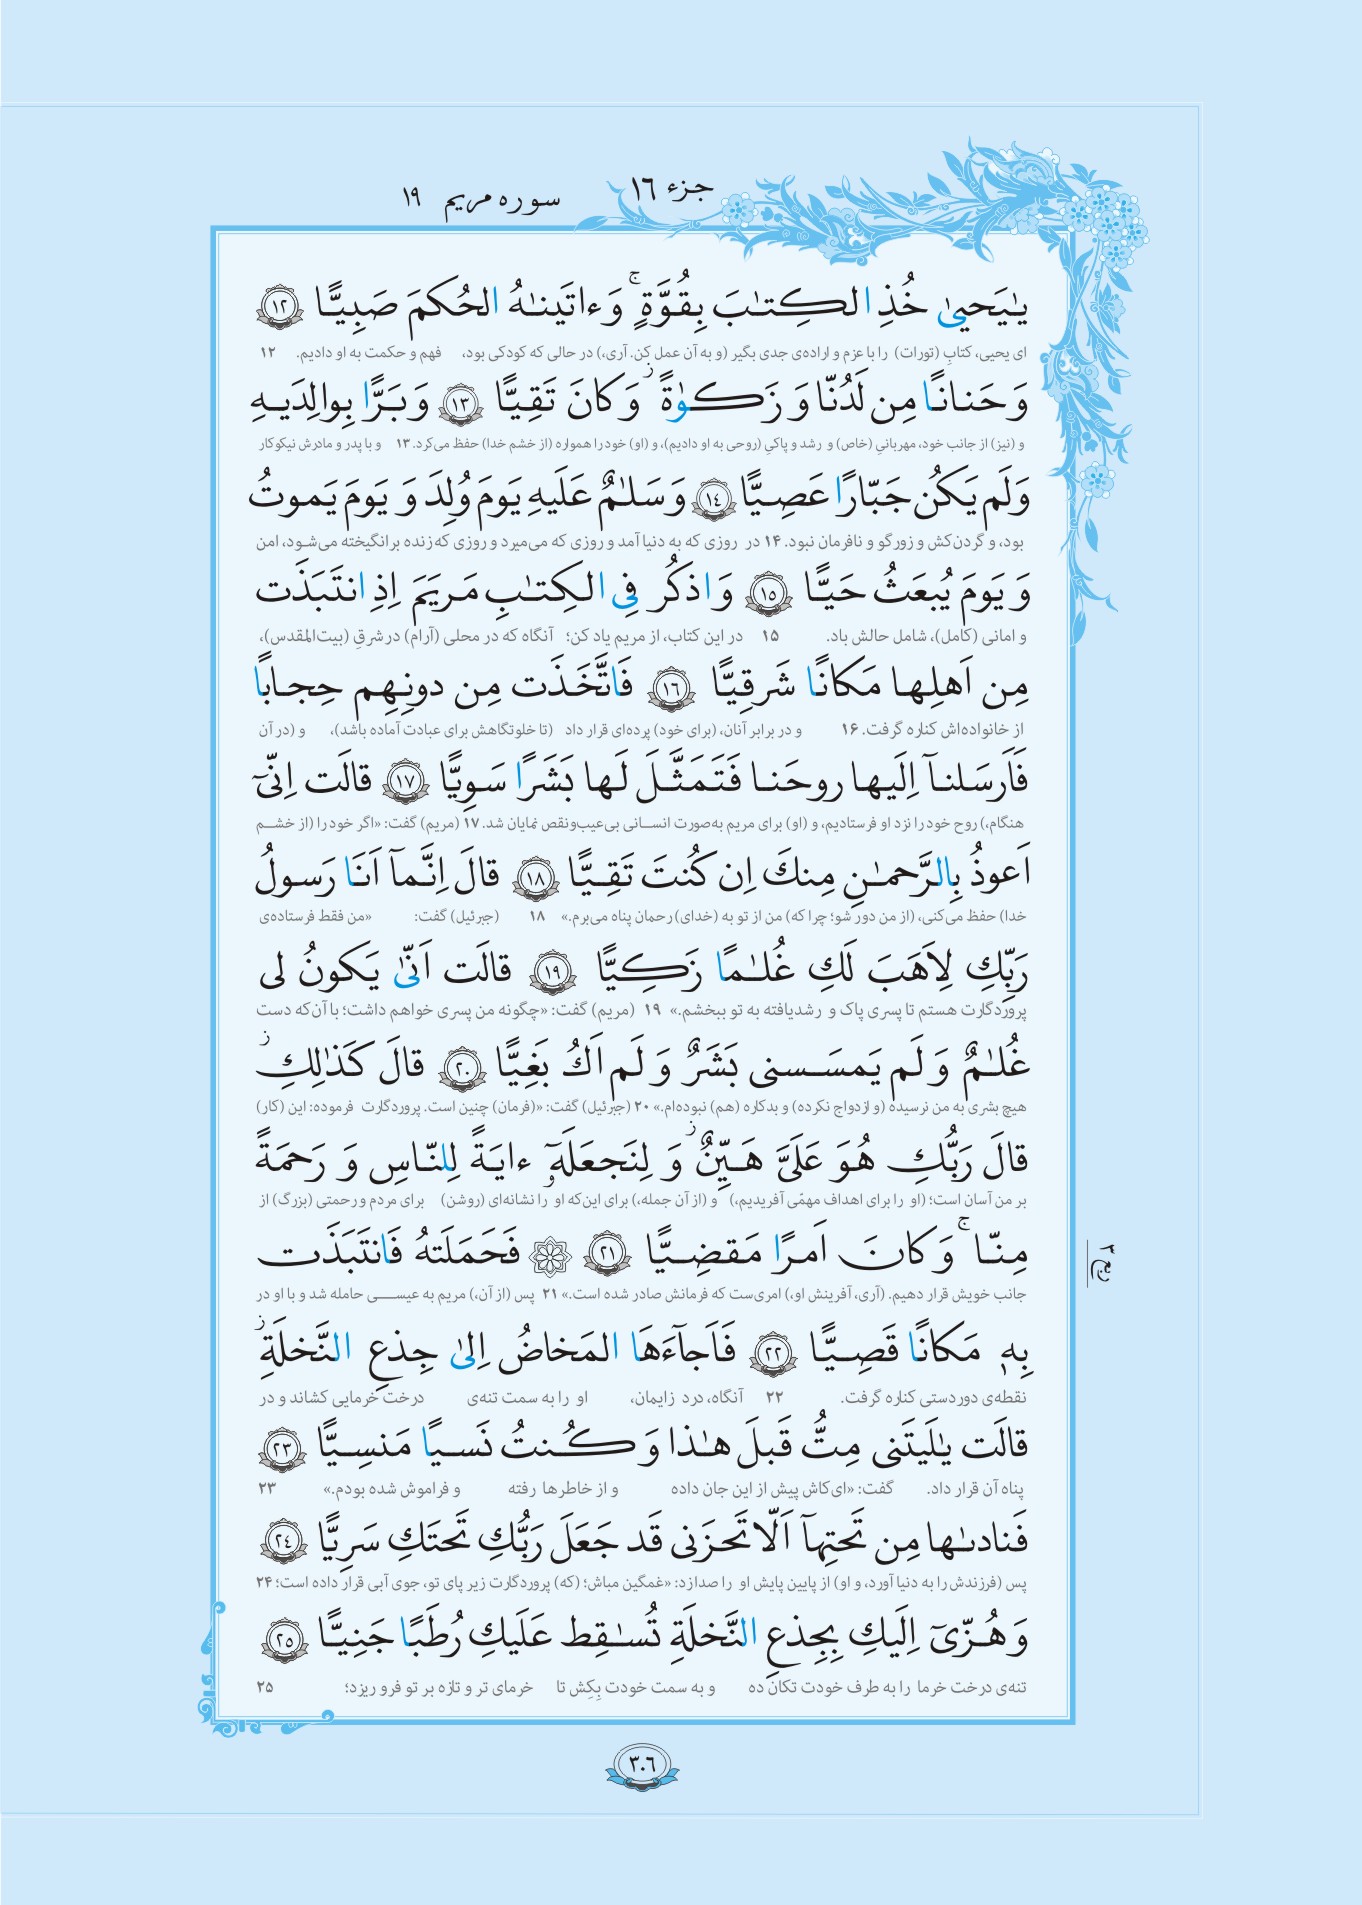 جزء ١٦
سوره مریم ١٩
یـٰیَحییٰ خُذِ الکِتـٰبَ بِقُوَّةٍ ۚ وَ ءاتَینـٰهُ الحُکمَ صَبِیًّا ﴿١٢﴾
ای یحیی، کتابِ (تورات) را با عزم و اراده‌ی جدی بگیر (و به آن عمل کن. آری،) در حالی که کودکی بود، فهم و حکمت به او دادیم. ۱۲
وَ حَنانًا مِن لَدُنّا وَ زَکوٰةً ۖ وَ کانَ تَقِیًّا ﴿١٣﴾ وَ بَرًّا بِوالِدَیهِ
و (نیز) از جانب خود، مهربانیِ (خاص) و رشد و پاکیِ (روحی به او دادیم)، و (او) خود را همواره (از خشم خدا) حفظ می‌کرد. ۱۳ و با پدر و مادرش نیکوکار
وَلَم یَکُن جَبّارًا عَصِیًّا ﴿١٤﴾ وَ سَلـٰمٌ عَلَیهِ یَومَ وُلِدَ وَ یَومَ یَموتُ
بود، و گردن‌کش و زورگو و نافرمان نبود. ۱۴ در روزی که به دنیا آمد و روزی که می‌میرد و روزی که زنده برانگیخته می‌شود، امن
وَ یَومَ یُبعَثُ حَیًّا ﴿١٥﴾ وَ اذکُر فِی الکِتـٰبِ مَریَمَ اِذِ انتَبَذَت
و امانی (کامل)، شامل حالش باد. ۱۵ در این کتاب، از مریم یاد کن؛ آنگاه که در محلی (آرام) در شرقِ (بیت‌المقدس)،
مِن اَهلِها مَکانًا شَرقِیًّا ﴿١٦﴾ فَاتَّخَذَت مِن دونِهِم حِجابًا
از خانواده‌اش کناره گرفت. ۱۶ و در برابر آنان، (برای خود) پرده‌ای قرار داد (تا خلوتگاهش برای عبادت آماده باشد)، و (در آن
فَاَرسَلنآ اِلَیها روحَنا فَتَمَثَّلَ لَها بَشَرًا سَوِیًّا ﴿١٧﴾ قالَت اِنّیٓ
هنگام،) روح خود را نزد او فرستادیم، و (او) برای مریم به‌صورت انسانی بی‌عیب‌ونقص نمایان شد. ۱۷ (مریم) گفت: «اگر خود را (از خشم
اَعوذُ بِالرَّحمـٰنِ مِنكَ اِن کُنتَ تَقِیًّا ﴿١٨﴾ قالَ اِنَّمآ اَنَا رَسولُ
خدا) حفظ می‌کنی، (از من دور شو؛ چرا که) من از تو به (خدای) رحمان پناه می‌برم.» ۱۸ (جبرئیل) گفت: «من فقط فرستاده‌ی
رَبِّكِ لِاَهَبَ لَكِ غُلـٰمًا زَکِیًّا ﴿١٩﴾ قالَت اَنّیٰ یَکونُ لی
پروردگارت هستم تا پسری پاک و رشدیافته به تو ببخشم.» ۱۹ (مریم) گفت: «چگونه من پسری خواهم داشت؛ با آن‌که دست
غُلـٰمٌ وَ لَم یَمسَسنی بَشَرٌ وَ لَم اَكُ بَغِیًّا ﴿٢٠﴾ قالَ کَذٰلِكِ ۖ
هیچ بشری به من نرسیده (و ازدواج نکرده) و بدکاره (هم) نبوده‌ام.» ۲۰ (جبرئیل) گفت: «(فرمان) چنین است. پروردگارت فرموده: این (کار)
قالَ رَبُّكِ هُوَ عَلَیَّ هَیِّنٌ ۖ وَ لِنَجعَلَهٓۥ ءایَةً لِلنّاسِ وَ رَحمَةً
بر من آسان است؛ (او را برای اهداف مهمّی آفریدیم،) و (از آن جمله،) برای این‌که او را نشانه‌ای (روشن) برای مردم و رحمتی (بزرگ) از
مِنّا ۚ وَ کانَ اَمرًا مَقضِیًّا ﴿٢١﴾ ۞ فَحَمَلَتهُ فَانتَبَذَت
جانب خویش قرار دهیم. (آری، آفرینش او،) امری‌ست که فرمانش صادر شده است.» ۲۱ پس (از آن،) مریم به عیسی حامله شد و با او در
ربع ٢
بِهٖ مَکانًا قَصِیًّا ﴿٢٢﴾ فَاَجآءَهَا المَخاضُ اِلیٰ جِذعِ النَّخلَةِ ۖ
نقطه‌ی دوردستی کناره گرفت. ۲۲ آنگاه، درد زایمان، او را به سمت تنه‌ی درخت خرمایی کشاند و در
قالَت یـٰلَیتَنی مِتُّ قَبلَ هـٰذا وَ کُنتُ نَسیًا مَنسِیًّا ﴿٢٣﴾
پناه آن قرار داد. گفت: «ای‌کاش پیش از این جان داده و از خاطرها رفته و فراموش شده بودم.» ۲۳
فَنادىـٰها مِن تَحتِهآ اَلّا تَحزَنی قَد جَعَلَ رَبُّكِ تَحتَكِ سَرِیًّا ﴿٢٤﴾
پس (فرزندش را به دنیا آورد، و او) از پایین پایش او را صدا زد: «غمگین مباش؛ (که) پروردگارت زیر پای تو، جوی آبی قرار داده است؛ ۲۴
وَ هُزّیٓ اِلَیكِ بِجِذعِ النَّخلَةِ تُسـٰقِط عَلَیكِ رُطَبًا جَنِیًّا ﴿٢٥﴾
تنه‌ی درخت خرما را به طرف خودت تکان ده و به سمت خودت بِکِش تا خرمای تر و تازه بر تو فرو ریزد؛ ۲۵
٣٠٦